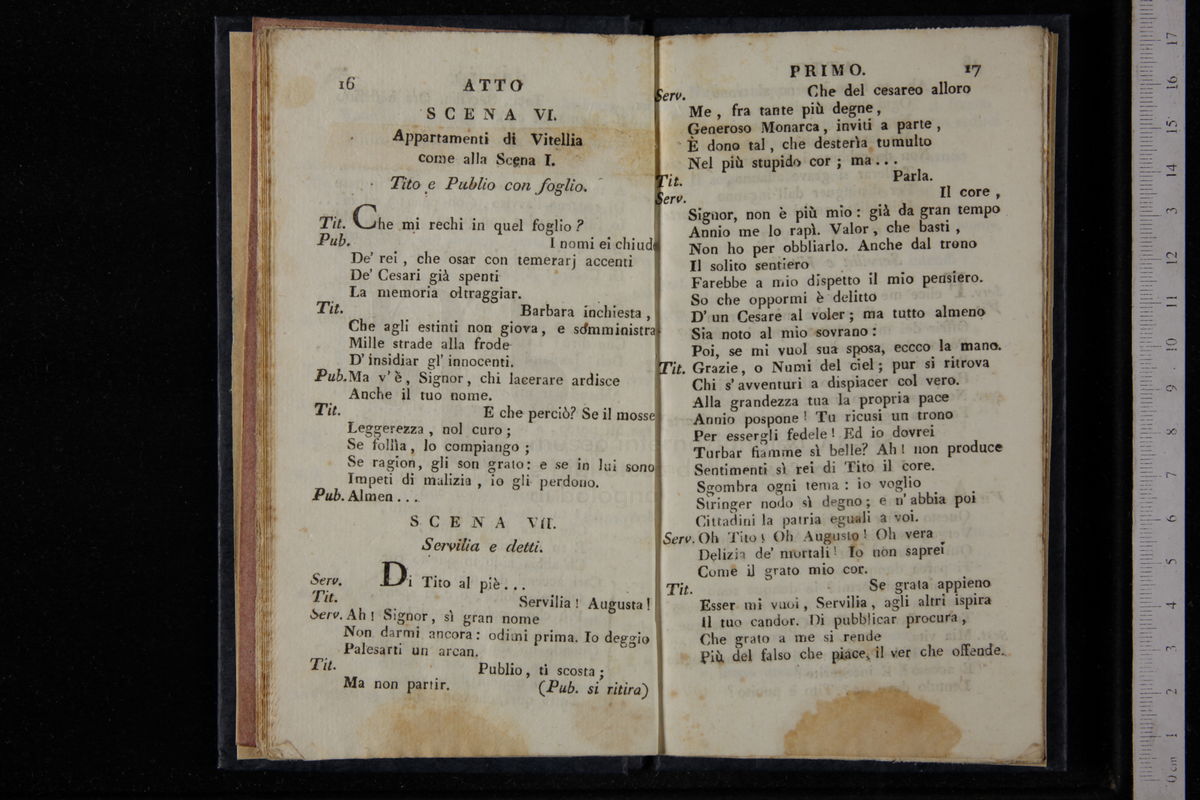 16 ATTO
SCENA VI.
Appartamenti di Vitellia
come alla Scena I.
Tito e Publio con foglio.
Tit. Che mi rechi in quel foglio?
Pub. I nomi ei chiude
De' rei, che osar con temerarj accenti
De' Cesari già spenti
La memoria oltraggiar.
Tit. Barbara inchiesta,
Che agli estinti non giova, e somministra
Mille strade alla frode
D'insidiar gl'innocenti.
Pub. Ma v'è, Signor, chi lacerare ardisce
Anche il tuo nome.
Tit. E che perciò? Se il mosse
Leggerezza, nol curo;
Se follìa, lo compiango;
Se ragion, gli son grato: e se in lui sono
Impeti di malizia, io gli perdono.
Pub. Almen...
SCENA VII.
Servilia e detti.
Serv. Di Tito al piè...
Tit. Servilia! Augusta!
Serv. Ah! Signor, sì gran nome
Non darmi ancora: odimi prima. Io deggio
Palesarti un arcan.
Tit. Publio, ti scosta;
Ma non partir. (Pub. si ritira)
PRIMO. 17
Serv. Che del cesareo alloro
Me, fra tante più degne,
Generoso Monarca, inviti a parte,
È dono tal, che desterìa tumulto
Nel più stupido cor; ma...
Tit. Parla.
Serv. Il core,
Signor, non è più mio: già da gran tempo
Annio me lo rapì. Valor, che basti,
Non ho per obbliarlo. Anche dal trono
Il solito sentiero
Farebbe a mio dispetto il mio pensiero.
So che oppormi è delitto
D'un Cesare al voler; ma tutto almeno
Sia noto al mio sovrano:
Poi, se mi vuol sua sposa, eccco la mano.
Tit. Grazie, o Numi del ciel; pur si ritrova
Chi s'avventuri a dispiacer col vero.
Alla grandezza tua la propria pace
Annio pospone! Tu ricusi un trono
Per essergli fedele! Ed io dovrei
Turbar fiamme sì belle? Ah! non produce
Sentimenti sì rei di Tito il core.
Sgombra ogni tema: io voglio
Stringer nodo sì degno; e n'abbia poi
Cittadini la patria eguali a voi.
Serv. Oh Tito! Oh Augusto! Oh vera
Delizia de' mortali! Io non saprei
Come il grato mio cor.
Tit. Se grata appieno
Esser mi vuoi, Servilia, agli altri ispira
Il tuo candor. Di pubblicar procura,
Che grato a me si rende
Più del falso che piace, il ver che offende.
0 cm 1 2 3 4 5 6 7 8 9 10 11 12 13 14 15 16 17